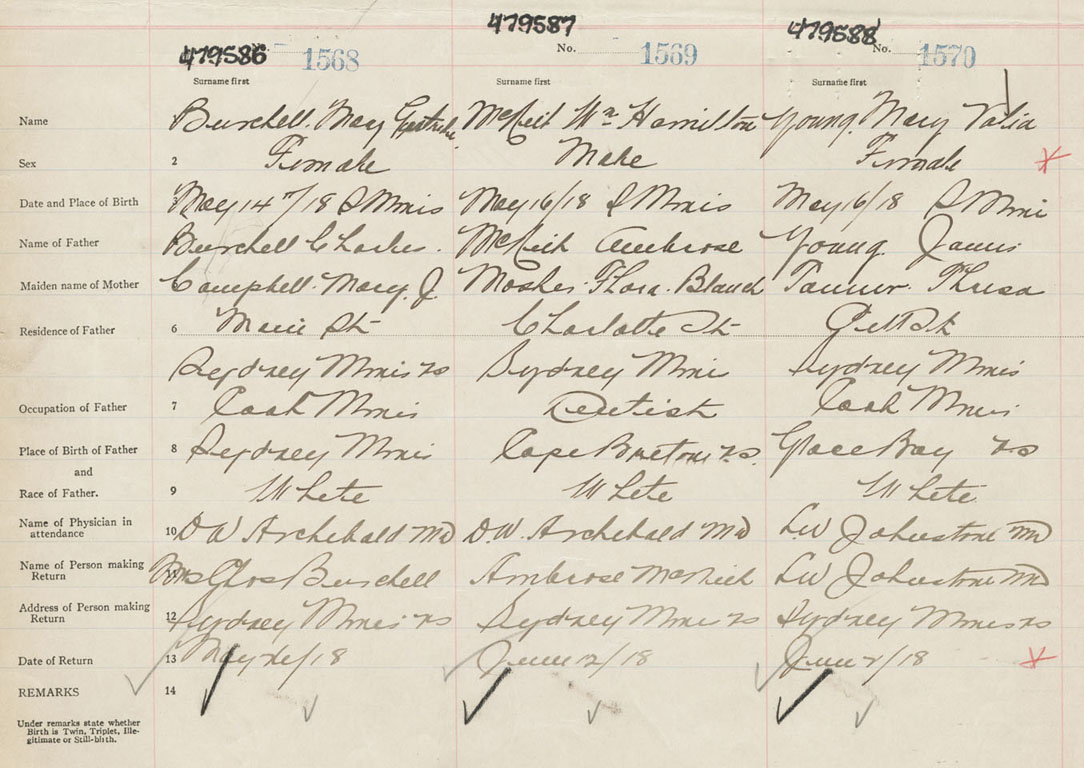 479586 479587 479588
1568 No. 1569 No. 1570
Surname first Surname first Surname first
Name Burchell. Mary Gertrude McKeil Wm Hamilton Young. Mary
Sex 2 Female Male Female
Date and Place of Birth 3 May 14th/18 S Mines May 16/18 S Mines May 16/18 S Mines
Name of Father Burchell Charles. McKeil Ambrose Young. James
Maiden name of Mother Campbell. Mary. J. Mosher. Flora. Blanch Tanner. Thresa
Residence of Father 6 St Charlotte St Pitt St
Sydney Mines NS Sydney Mines Sydney Mines
Occupation of Father 7 Coal Mines Dentist Coal Mines
Place of Birth of Father 8 Sydney Mines Cape Breton NS. Glace Bay NS
and
Race of Father. 9 White White White
Name of Physician in
attendance 10 D W Archebald MD D.W. Archebald MD LW Johnstone MD
Name of Person making
Return 11 Mrs Chas Burchell Ambrose McKeil LW Johnstone MD
Address of Person making
Return 12 Sydney Mines NS Sydney Mines NS Sydney Mines NS
Date of Return 13 May /18 June 12/18 June 2/18
REMARKS 14
Under remarks state whether
Birth is Twin, Triplet, Ille-
gitimate or Still-birth.